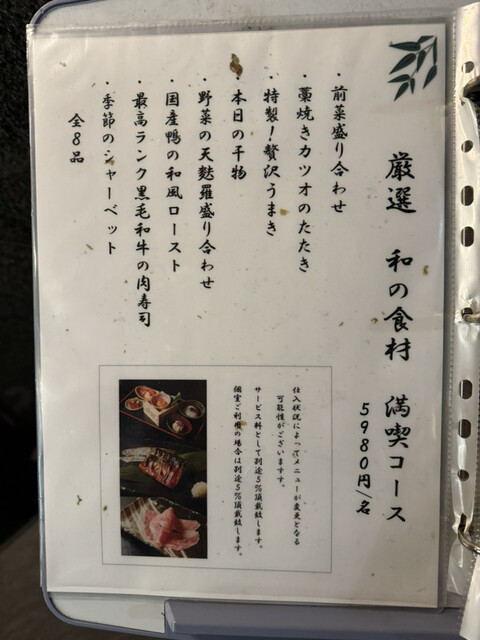 厳選 和の食材 満喫コース
5980円/名
・前菜盛り合わせ
・藁焼きカツオのたたき
・特製！贅沢うまき
・本日の干物
・野菜の天麩羅盛り合わせ
・国産鴨の和風ロースト
・最高ランク黒毛和牛の肉寿司
・季節のシャーベット
全8品
仕入状況によってメニューが変更となる
可能性がございます。
サービス料として別途5%頂戴致します。
個室ご利用の場合は別途5%頂戴致します。